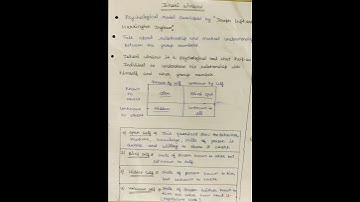 Johari window
Psychological model developed by "Joseph Luft and
Harrington Ingham".
Talk about relationship and mutual understanding
between the group members
Johari window is a psychological tool that helps an
Individual to understand his relationship with
himself and other group members.
Known by self unknown by self
Known to others
open
Blind spot
unknown to others
Hidden
unknown self
1) open self : This quadrant show the behaviour,
knowledge, skills of person is
aware and willing to share it others
2) Blind self : traits of person known to others but
unknown to self.
3) Hidden self : traits of person known to him,
but unknown to others.
4) unknown self : traits of person neither known to
him nor other